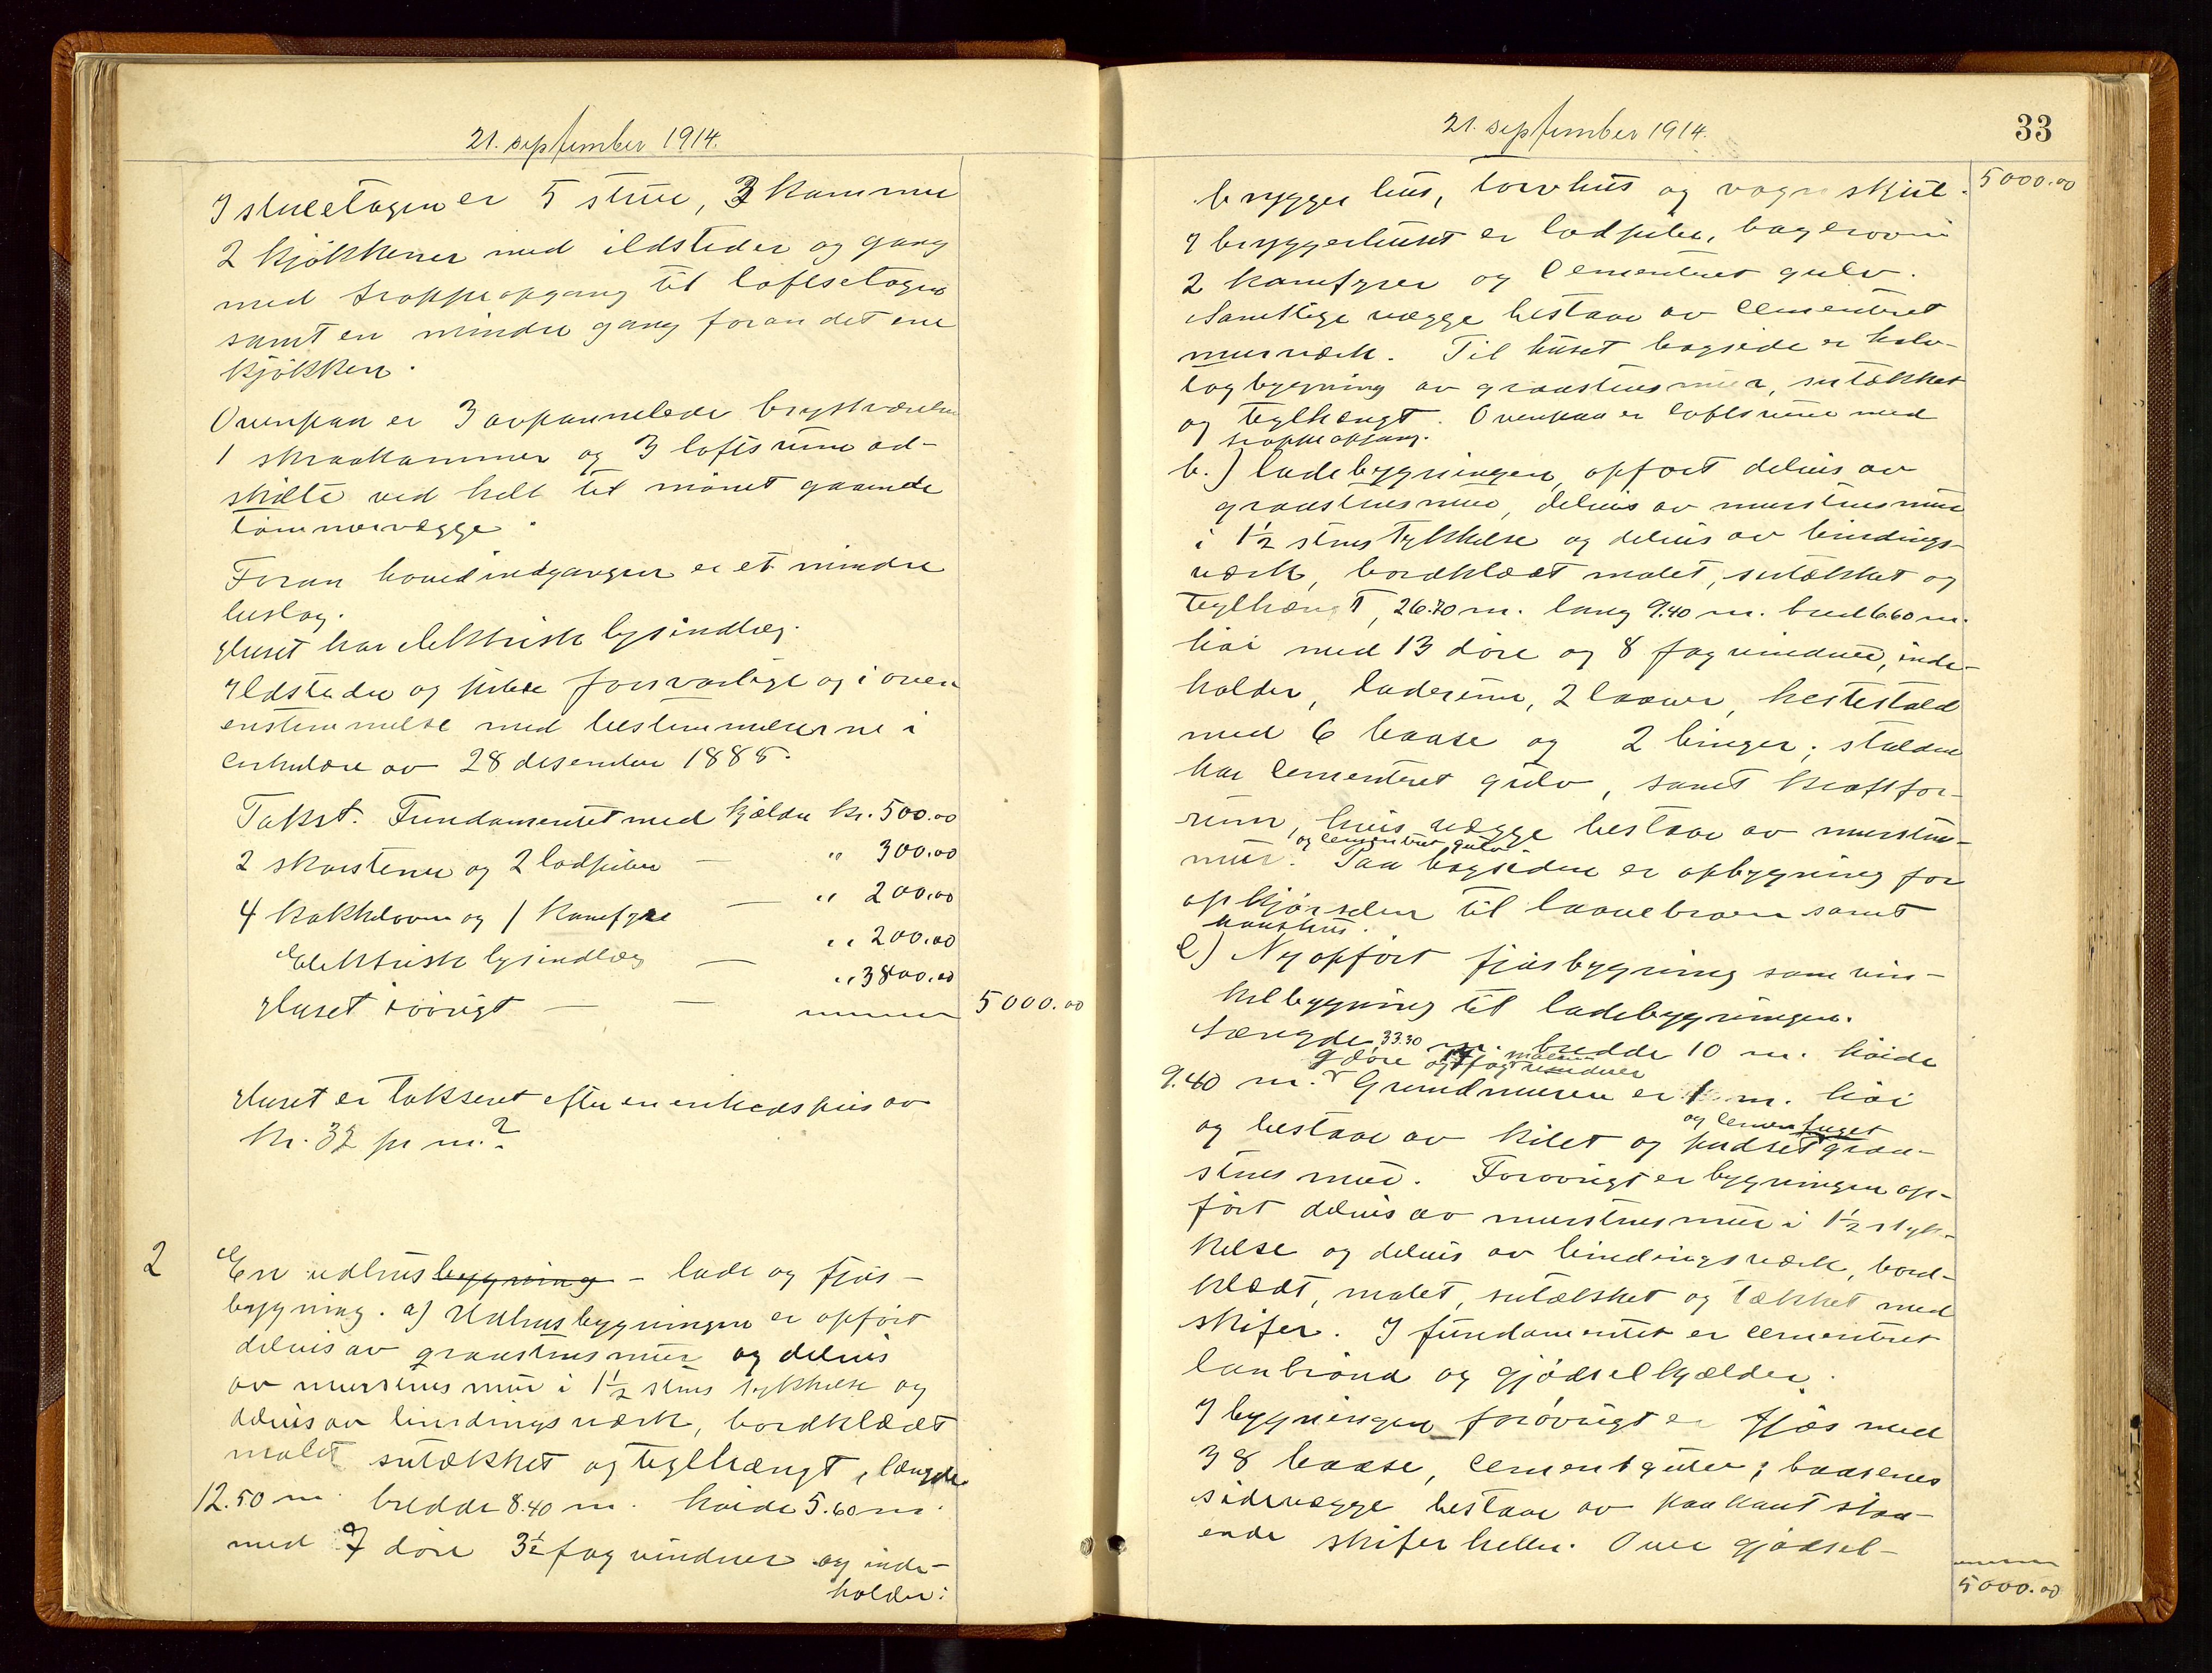 21. september 1914.
I stueetagen er 5 stuer, 3 kammer
2 kjökkener med ildsteder og gang
med trappeopgang til loftsetagen
samt en mindre gang foran det ene
kjökken.
Ovenpaa er 3 avpannelede brystværelser
1 skraakammer og 3 loftsrum ad-
skilte ved helt til mönet gaaende
tömmervægge.
Foran hovedindgangen er et mindre
bislag.
Huset har elektrisk lysindlæg.
Ildsteder og piber forsvarlige og i over
enstemmelse med bestemmelserne i
cirkulære av 28 desember 1885.
Takst. Fundamentet med kjælder kr. 500.00
2 skorstener og 2 lodpiber — " 300.00
4 kakkelovne og 1 komfyre — " 200.00
Elektrisk lysindlæg — " 200.00
Huset iövrigt — — " 3800.00
5000.00
Huset er takseret efter en enhedspris av
kr. 32 pr m.²
2 En udhusbygning - lade og fjös-
bygning. a) Udhusbygningen er opfört
delvis av graastensmur og delvis
av murstensmur i 1½ stens tykkelse og
delvis av bindingsverk, bordklædt
malet sutækket og teglhængt, længde
12.50 m. bredde 8.40 m. höide 5.60 m.
med 7 döre 3½ fag vinduer og inde-
holder:
21. september 1914.
33
bryggerhus, torvhus og vognskjul. 5000.00
I bryggerhuset er lodpibe, bagerovn
2 komfyrer og cementeret gulv.
Samtlige vægge bestaar av cementeret
murværk. Til huset bagside er halv-
tagbygning av graastensmur, sutækket
og teglhængt. Ovenpaa er loftsrum med
trappeopgang.
b.) Ladebygningen, opfört delvis av
graastensmur, delvis av murstensmur
i 1½ stens tykkelse og delvis av bindings-
værk, bordklædt malet, sutækket og
teglhængt, 26.70 m. lang 9.40 m. bred 6.60 m.
höi med 13 döre og 8 fag vinduer, inde-
holder, laderum, 2 laaver, hestestald
med 6 baase og 2 binger; stalden
har cementeret gulv, samt kraftfor-
rum, hvis vægge bestaar av mursten-
og cementeret gulv
mur. Paa bagsiden er opbygning for
opkjörselen til laavebroen samt
vognhus.
c) Nyopfört fjösbygning som vin-
kelbygning til ladebygningen.
Længde 33.30 m. bredde 10 m. höide
9 döre og 17 fag vinduer
9.40 m. Grundmuren er 1 m. höi
og cementfuget
og bestaar av kilet og pudset graa-
stensmur. Forövrigt er bygningen op-
fört delvis av murstensmur i 1½ st tyk-
kelse og delvis av bindingsværk, bord-
klædt, malet, sutækket og tækket med
skifer. I fundamentet er cementeret
landbrönd og gjödselkjælder.
I bygningen forövrigt er fjös med
38 baase, cementgulv; baasenes
sidevægge bestaar av paa kant staa-
ende skiferheller. Over gjödsel-
5000.00